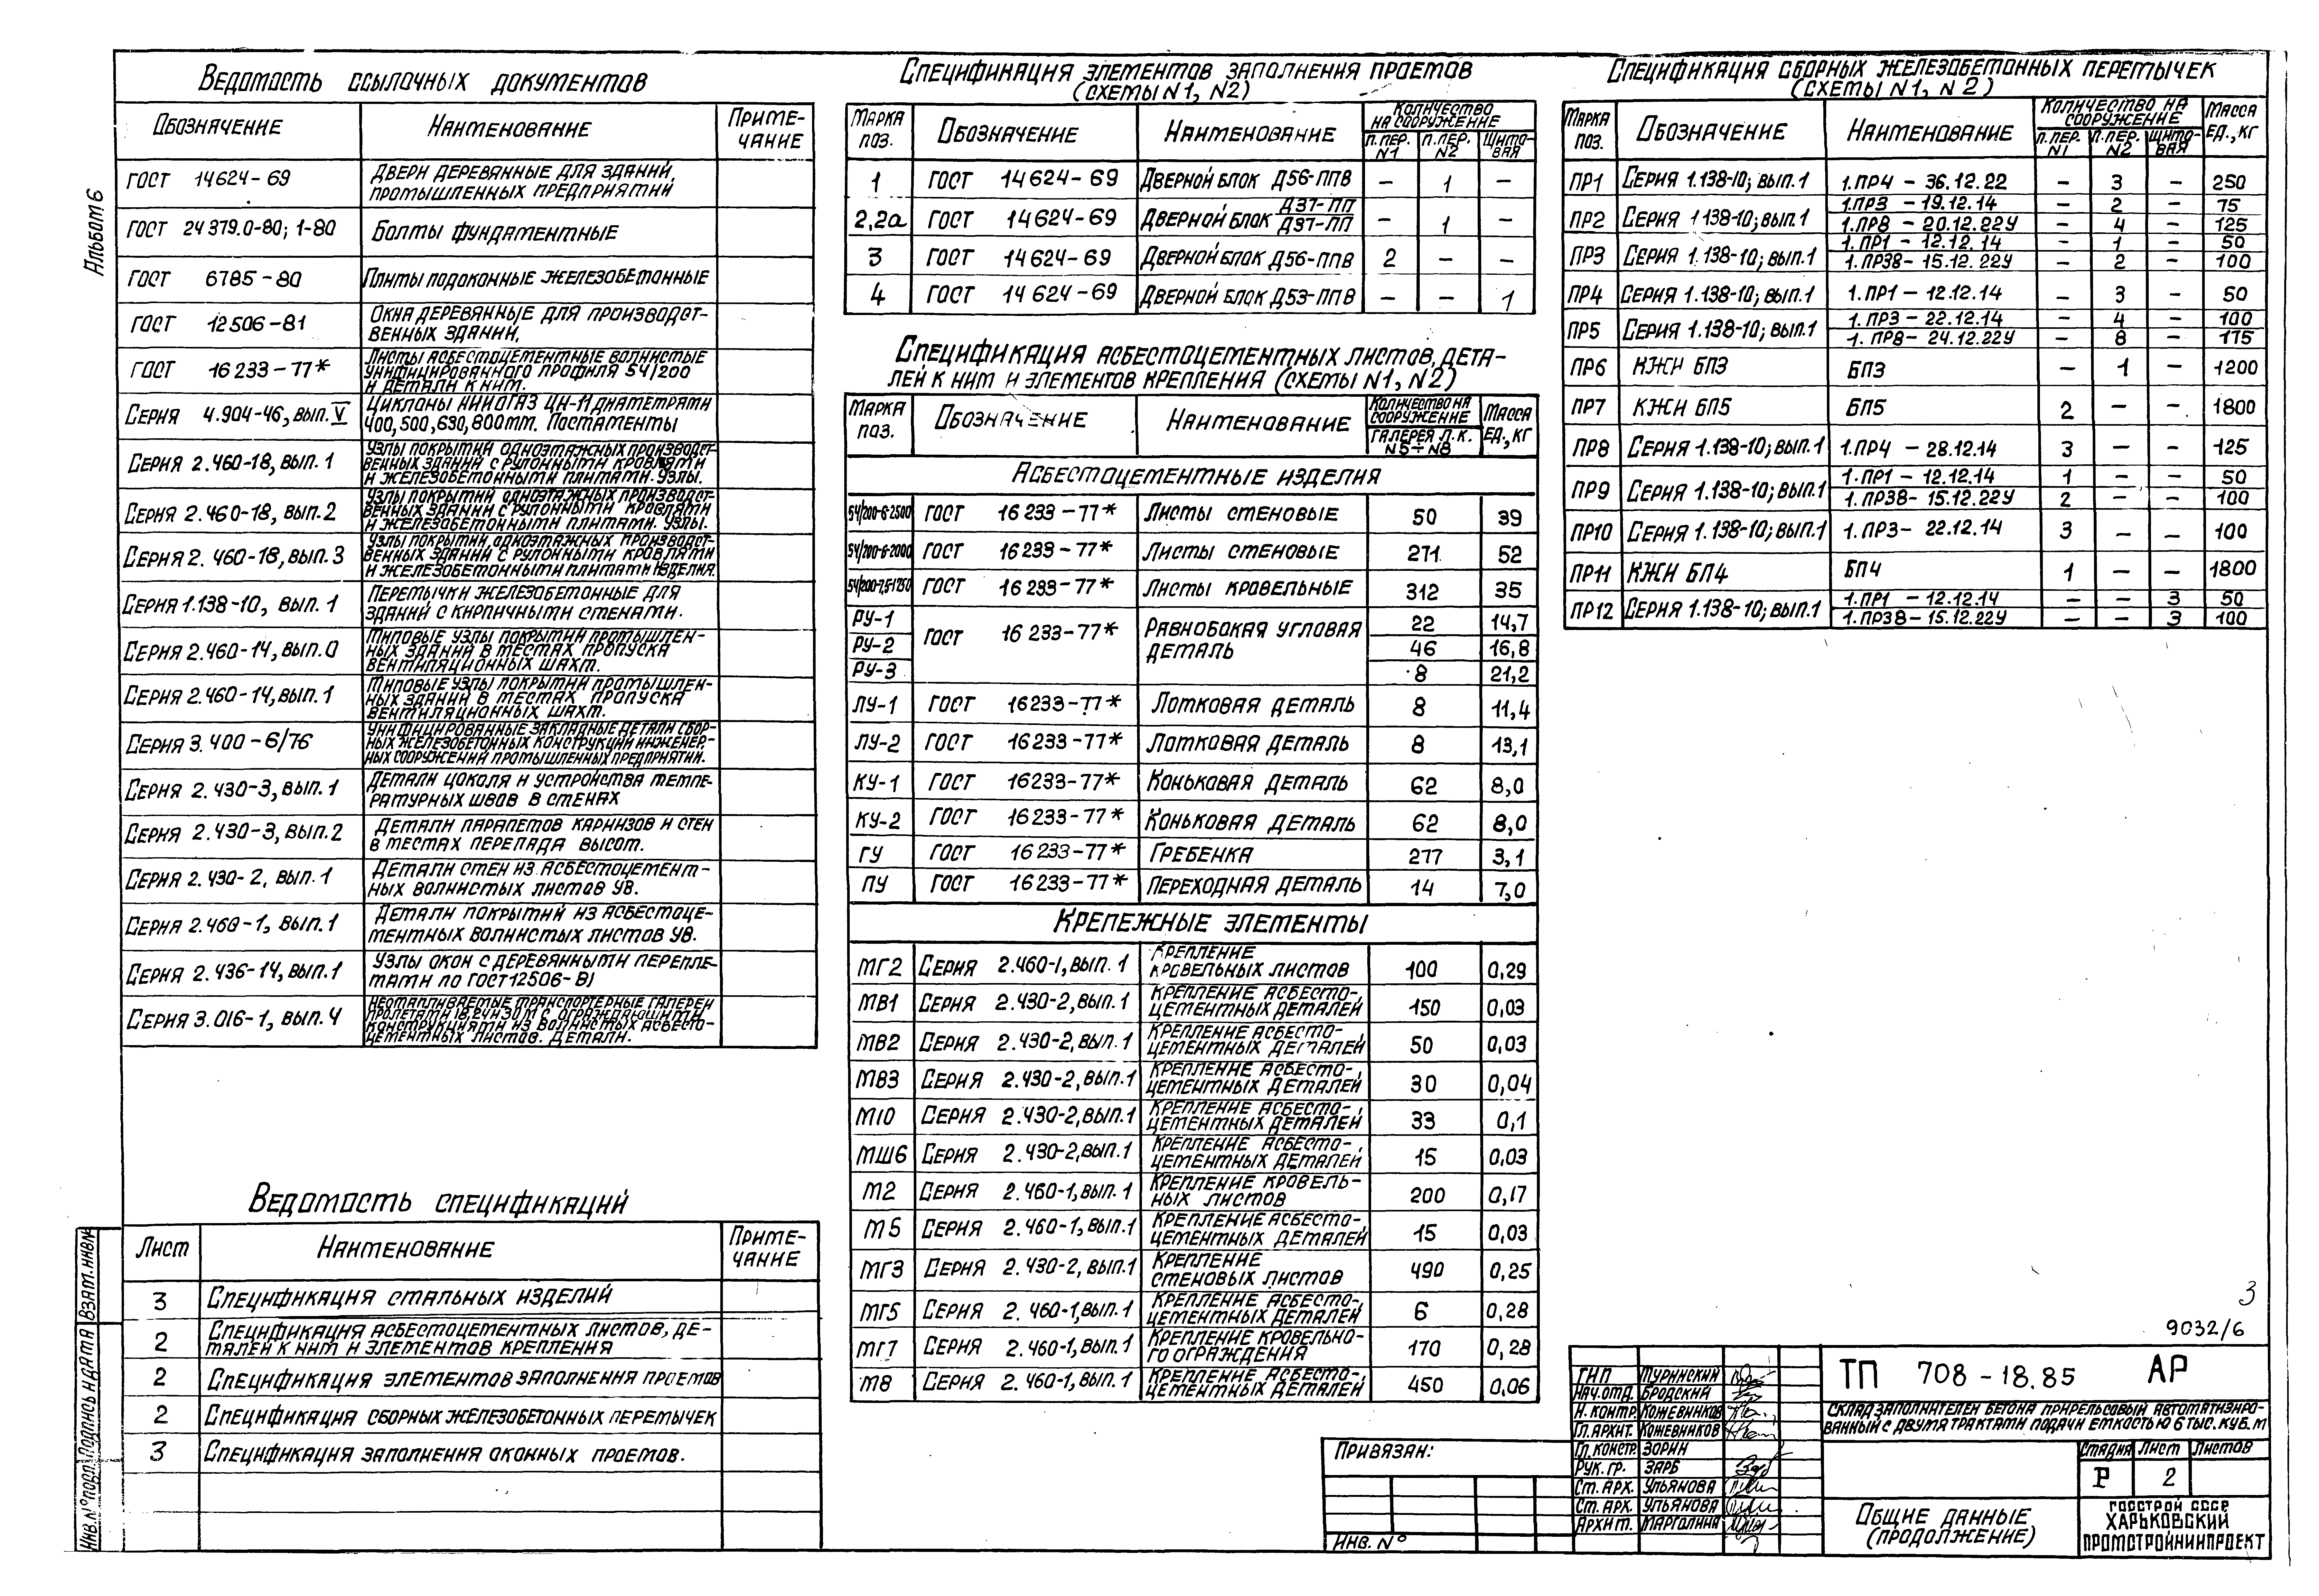 Альбом 6
Ведомость ссылочных документов
Обозначение | Наименование | Примечание
ГОСТ 14624-69 | Двери деревянные для зданий промышленных предприятий
ГОСТ 24379.0-80; 1-80 | Болты фундаментные
ГОСТ 6785-80 | Плиты подоконные железобетонные
ГОСТ 12506-81 | Окна деревянные для производственных зданий.
ГОСТ 16233-77* | Листы асбестоцементные волнистые унифицированного профиля 54/200 и детали к ним.
Серия 4.904-46, вып. V | Циклоны НИИОГАЗ ЦН-11 диаметрами 400, 500, 630, 800мм. Постаменты
Серия 2.460-18, вып. 1 | Узлы покрытий одноэтажных производственных зданий с рулонными кровлями и железобетонными плитами. Узлы.
Серия 2.460-18, вып. 2 | Узлы покрытий одноэтажных производственных зданий с рулонными кровлями и железобетонными плитами. Узлы.
Серия 2.460-18, вып. 3 | Узлы покрытий одноэтажных производственных зданий с рулонными кровлями и железобетонными плитами Изделия.
Серия 1.138-10, вып. 1 | Перемычки железобетонные для зданий с кирпичными стенами.
Серия 2.460-14, вып. 0 | Типовые узлы покрытий промышленных зданий в местах пропуска вентиляционных шахт.
Серия 2.460-14, вып. 1 | Типовые узлы покрытий промышленных зданий в местах пропуска вентиляционных шахт.
Серия 3.400-6/76 | Унифицированные закладные детали сборных железобетонных конструкций инженерных сооружений промышленных предприятий.
Серия 2.430-3, вып. 1 | Детали цоколя и устройства температурных швов в стенах
Серия 2.430-3, вып. 2 | Детали парапетов карнизов и стен в местах перепада высот.
Серия 2.430-2, вып. 1 | Детали стен из асбестоцементных волнистых листов УВ.
Серия 2.460-1, вып. 1 | Детали покрытий из асбестоцементных волнистых листов УВ.
Серия 2.436-14, вып. 1 | Узлы окон с деревянными переплетами по ГОСТ 12506-81
Серия 3.016-1, вып. 4 | Неотапливаемые транспортерные галереи пролетами 18, 24 и 30 м с ограждающими конструкциями из волнистых асбестоцементных листов. Детали.
Ведомость спецификаций
Лист | Наименование | Примечание
3 | Спецификация стальных изделий
2 | Спецификация асбестоцементных листов, деталей к ним и элементов крепления
2 | Спецификация элементов заполнения проемов
2 | Спецификация сборных железобетонных перемычек
3 | Спецификация заполнения оконных проемов.
Спецификация элементов заполнения проемов
(схемы N1, N2)
Марка поз. | Обозначение | Наименование | Количество на сооружение: П.пер. N1 | П.пер. N2 | Щитовая
1 | ГОСТ 14624-69 | Дверной блок Д56-ППВ | - | 1 | -
2,2а | ГОСТ 14624-69 | Дверной блок Д37-ПП Д37-ЛП | - | 1 | -
3 | ГОСТ 14624-69 | Дверной блок Д56-ППВ | 2 | - | -
4 | ГОСТ 14624-69 | Дверной блок Д53-ППВ | - | - | 1
Спецификация асбестоцементных листов, дета-
лей к ним и элементов крепления (схемы N1, N2)
Марка поз. | Обозначение | Наименование | Количество на сооружение Галерея Л.К. N5÷N8 | Масса ед., кг
Асбестоцементные изделия
54/200-6-2500 | ГОСТ 16233-77* | Листы стеновые | 50 | 39
54/200-6-2000 | ГОСТ 16233-77* | Листы стеновые | 271 | 52
54/200-7,5-1250 | ГОСТ 16233-77* | Листы кровельные | 312 | 35
РУ-1 | ГОСТ 16233-77* | Равнобокая угловая деталь | 22 | 14,7
РУ-2 | 46 | 16,8
РУ-3 | 8 | 21,2
ЛУ-1 | ГОСТ 16233-77* | Лотковая деталь | 8 | 11,4
ЛУ-2 | ГОСТ 16233-77* | Лотковая деталь | 8 | 13,1
КУ-1 | ГОСТ 16233-77* | Коньковая деталь | 62 | 8,0
КУ-2 | ГОСТ 16233-77* | Коньковая деталь | 62 | 8,0
ГУ | ГОСТ 16233-77* | Гребенка | 277 | 3,1
ПУ | ГОСТ 16233-77* | Переходная деталь | 14 | 7,0
Крепежные элементы
МГ2 | Серия 2.460-1, вып. 1 | Крепление кровельных листов | 100 | 0,29
МВ1 | Серия 2.430-2, вып. 1 | Крепление асбестоцементных деталей | 150 | 0,03
МВ2 | Серия 2.430-2, вып. 1 | Крепление асбестоцементных деталей | 50 | 0,03
МВ3 | Серия 2.430-2, вып. 1 | Крепление асбестоцементных деталей | 30 | 0,04
М10 | Серия 2.430-2, вып. 1 | Крепление асбестоцементных деталей | 33 | 0,1
МШ6 | Серия 2.430-2, вып. 1 | Крепление асбестоцементных деталей | 15 | 0,03
М2 | Серия 2.460-1, вып. 1 | Крепление кровельных листов | 200 | 0,17
М5 | Серия 2.460-1, вып. 1 | Крепление асбестоцементных деталей | 15 | 0,03
МГ3 | Серия 2.430-2, вып. 1 | Крепление стеновых листов | 490 | 0,25
МГ5 | Серия 2.460-1, вып. 1 | Крепление асбестоцементных деталей | 6 | 0,28
МГ7 | Серия 2.460-1, вып. 1 | Крепление кровельного ограждения | 170 | 0,28
М8 | Серия 2.460-1, вып. 1 | Крепление асбестоцементных деталей | 450 | 0,06
Спецификация сборных железобетонных перемычек
(схемы N1, N2)
Марка поз. | Обозначение | Наименование | Количество на сооружение: П.пер. N1 | П.пер. N2 | Щитовая | Масса ед., кг
ПР1 | Серия 1.138-10; вып. 1 | 1.ПР4 - 36.12.22 | - | 3 | - | 250
ПР2 | Серия 1.138-10; вып. 1 | 1.ПР3 - 19.12.14 | - | 2 | - | 75
1.ПР8 - 20.12.22У | - | 4 | - | 125
ПР3 | Серия 1.138-10; вып. 1 | 1.ПР1 - 12.12.14 | - | 1 | - | 50
1.ПР38 - 15.12.22У | - | 2 | - | 100
ПР4 | Серия 1.138-10; вып. 1 | 1.ПР1 - 12.12.14 | - | 3 | - | 50
ПР5 | Серия 1.138-10; вып. 1 | 1.ПР3 - 22.12.14 | - | 4 | - | 100
1.ПР8 - 24.12.22У | - | 8 | - | 175
ПР6 | КЖИ БП3 | БП3 | - | 1 | - | 1200
ПР7 | КЖИ БП5 | БП5 | 2 | - | - | 1800
ПР8 | Серия 1.138-10; вып. 1 | 1.ПР4 - 28.12.14 | 3 | - | - | 125
ПР9 | Серия 1.138-10; вып. 1 | 1.ПР1 - 12.12.14 | 1 | - | - | 50
1.ПР38 - 15.12.22У | 2 | - | - | 100
ПР10 | Серия 1.138-10; вып. 1 | 1.ПР3 - 22.12.14 | 3 | - | - | 100
ПР11 | КЖИ БП4 | БП4 | 1 | - | - | 1800
ПР12 | Серия 1.138-10; вып. 1 | 1.ПР1 - 12.12.14 | - | - | 3 | 50
1.ПР38 - 15.12.22У | - | - | 3 | 100
3
9032/6
ТП 708-18.85 АР
Склад заполнителей бетона прирельсовый автоматизиро-
ванный с двумя трактами подачи емкостью 6 тыс. куб. м
ГИП Туринский
Нач. отд. Бродский
Н. контр. Кожевников
Гл. архит. Кожевников
Гл. констр. Зорин
Рук. гр. Зарб
Ст. арх. Ульянова
Ст. арх. Ульянова
Архит. Марголина
Стадия | Лист | Листов
Р | 2
Общие данные
(продолжение)
Госстрой СССР
Харьковский
Промстройниипроект
Привязан:
Инв. N°
Инв. N° подл. | Подпись и дата | Взам. инв. N